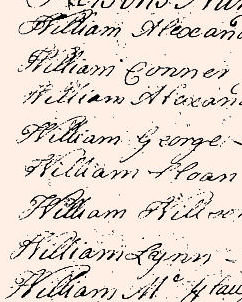 William Alexand
William Conner
William Alexand
William George
William Sloan
William Willso
William Lynn
William Mc